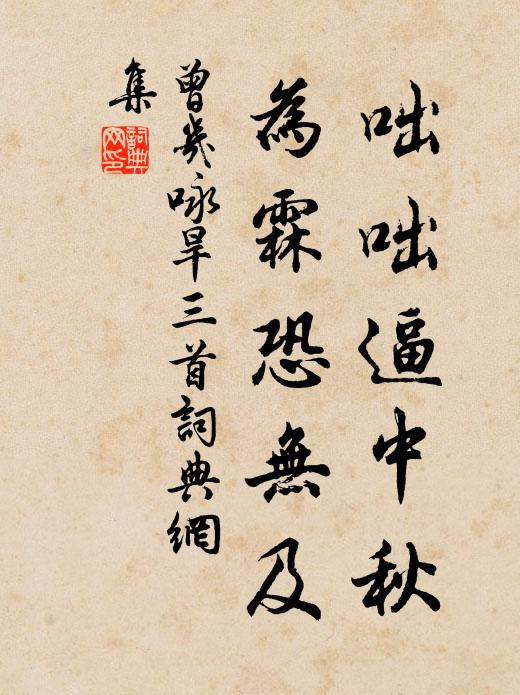 咄咄逼中秋
為霖恐無及
曾幾詠旱三首詞典網
集
詞典
网印